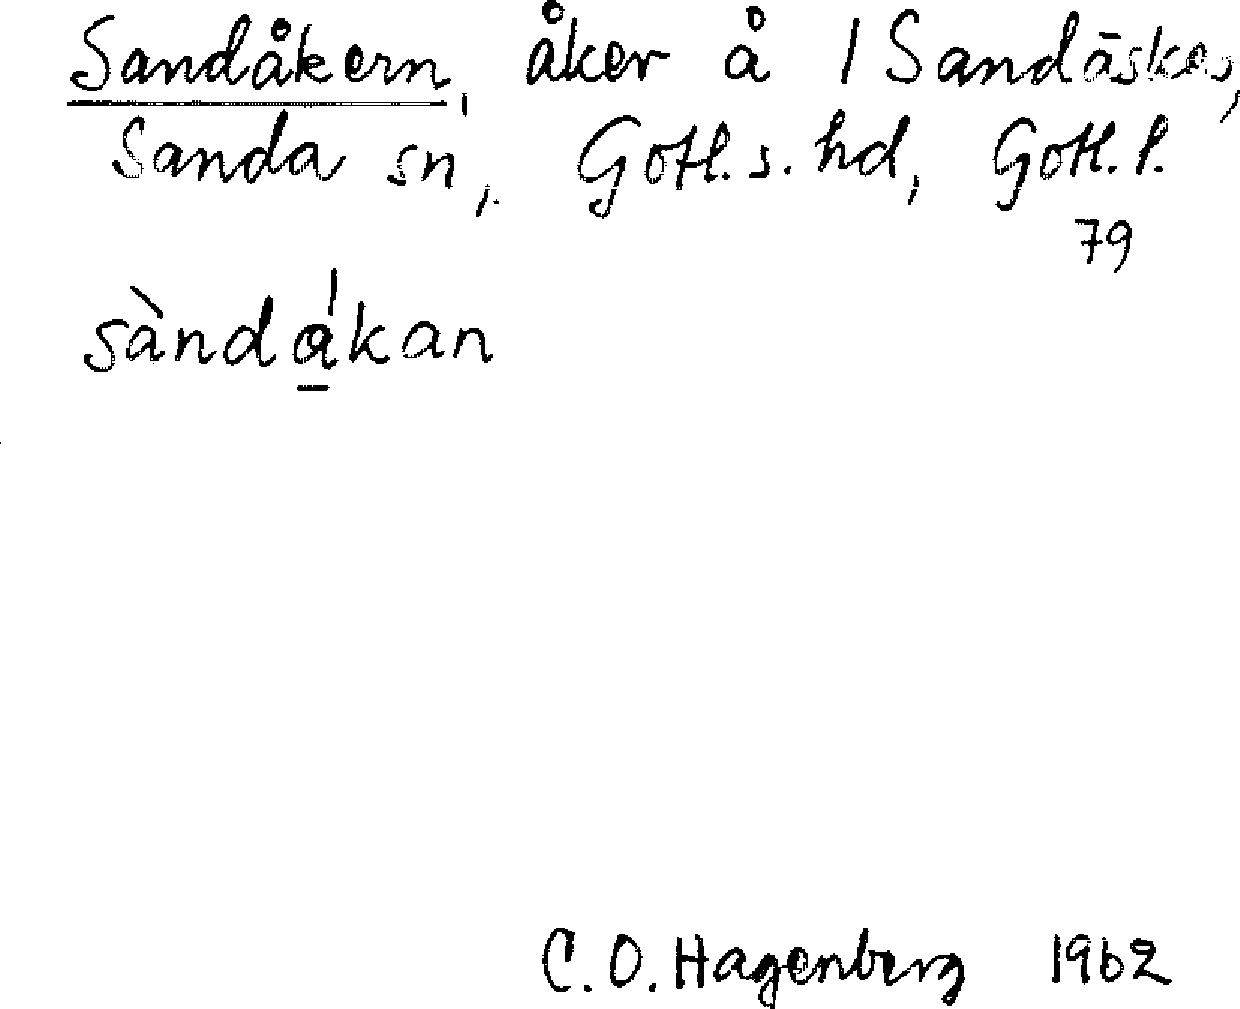 Sandåkern, åker å 1 Sandäskes,
Sanda sn, Gotl. s. hd, Gotl. l.
79
sànda̱̍kan
C. O. Hagenberg 1962